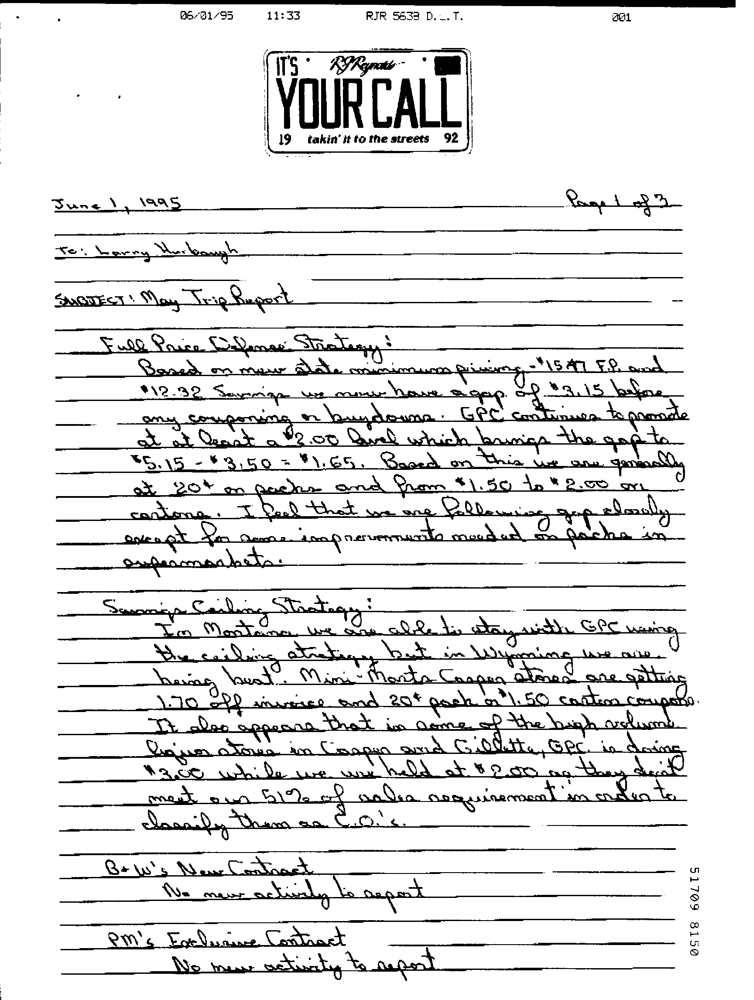 06/01/95 11:33 RJR 5633 D._.T. 001
IT'S RJReynolds
YOUR CALL
19 takin' it to the streets 92
June 1, 1995 Page 1 of 3
To: Larry Hurbaugh
SUBJECT: May Trip Report
Full Price Defense Strategy:
Based on new state minimum pricing - $15.47 F.P. and
$12.32 Savings we now have a gap of $3.15 before
any couponing or buydowns. GPC continues to promote
at at least a $2.00 level which brings the gap to
$5.15 - $3.50 = $1.65. Based on this we are generally
at 20¢ on packs and from $1.50 to $2.00 on
cartons. I feel that we are following gap closely
except for some improvements needed on packs in
supermarkets.
Savings Ceiling Strategy:
In Montana we are able to stay with GPC using
the ceiling strategy but in Wyoming we are
being beat. Mini-Marts Casper stores are getting
1.70 off invoice and 20¢ pack or $1.50 carton coupons.
It also appears that in some of the high volume
liquor stores in Casper and Gillette, GPC is doing
$3.00 while we are held at $2.00 as they don't
meet our 51% of sales requirement in order to
classify them as C.O.'s.
B+W's New Contract
No new activity to report
PM's Exclusive Contract
No new activity to report
51709 8150